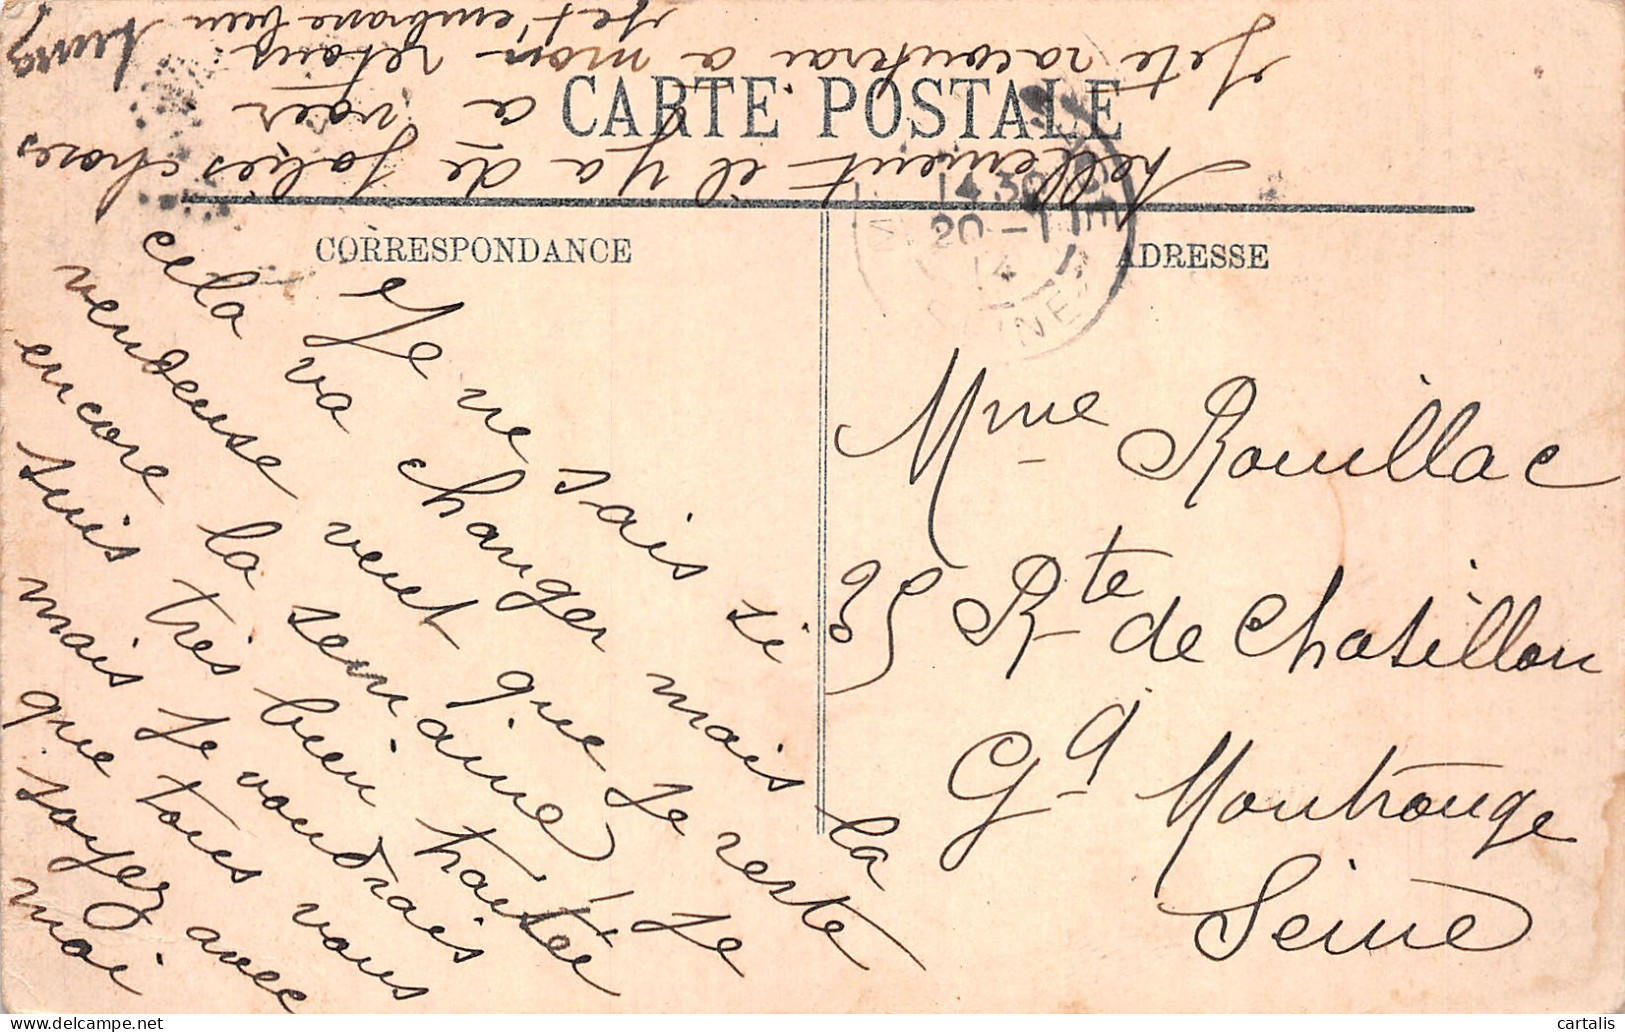 CARTE POSTALE
CORRESPONDANCE
ADRESSE
Je ne sais si
cela va changer mais la
vendeuse veut que je reste
encore la semaine, Je
suis très bien traitée
mais je voudrais
que tous vous
soyez avec
moi
tellement il y a de jolies choses
a voir
Je te raconterai a mon retour
Je t'embrasse bien
Mme Rouillac
35 Rte de Chatillon
Gd Montrouge
Seine
14 30
20 - 11
14
cartalis